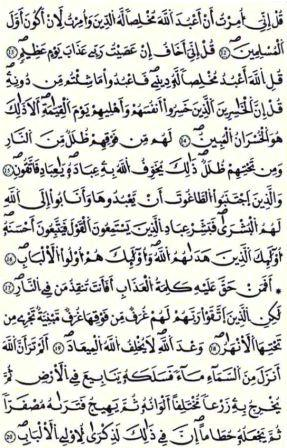 قل إني أمرت أن أعبد الله مخلصا له الدين وأمرت لأن أكون أول
المسلمين قل إني أخاف إن عصيت ربي عذاب يوم عظيم
قل الله أعبد مخلصا له ديني فاعبدوا ما شئتم من دونه
قل إن الخسرين الذين خسروا أنفسهم وأهليهم يوم القيمة ألا ذلك
هو الخسران المبين لهم من فوقهم ظلل من النار
ومن تحتهم ظلل ذلك يخوف الله به عباده يعباد فاتقون
والذين اجتنبوا الطاغوت أن يعبدوها وأنابوا إلى الله
لهم البشرى فبشر عباد الذين يستمعون القول فيتبعون أحسنه
أولئك الذين هدلهم الله وأولئك هم أولوا الألباب 16
أفمن حق عليه كلمة العذاب أفأنت تنقذ من في النار 17
لكن الذين اتقوا ربهم لهم غرف من فوقها غرف مبنية تجري من
تحتها الأنهر 18 وعد الله لا يخلف الله الميعاد 19 ألم تر أن الله
أنزل من السماء ماء فسلكه ينابيع في الأرض ثم
يخرج به زرعا مختلفا ألوانه ثم يهيج فتريه مصفرا
ثم يجعله حطاما إن في ذلك لذكرى لأولي الألباب 20